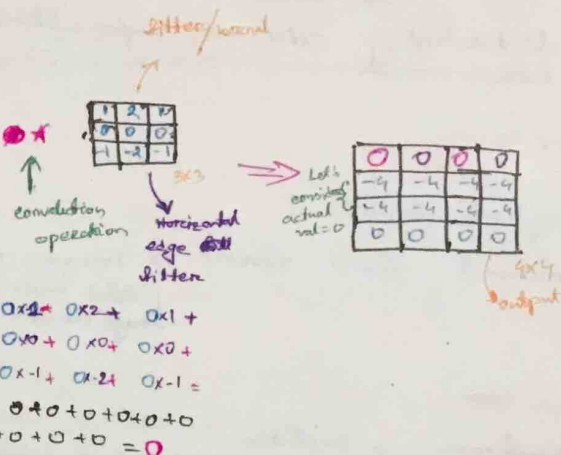 filter/kernel
1 2
0 0 0
-1 -2 -1
3x3
convolution
operation
Horizontal
edge
filter
Let's
consider
actual
val = 0
0 0 0 0
-4 -4 -4 -4
-4 -4 -4 -4
0 0 0 0
4x4
output
0x1+ 0x2+ 0x1 +
0x0+ 0x0+ 0x0 +
0x-1+ 0x-2+ 0x-1 =
0+0+0+0+0+0
+0+0+0 = 0